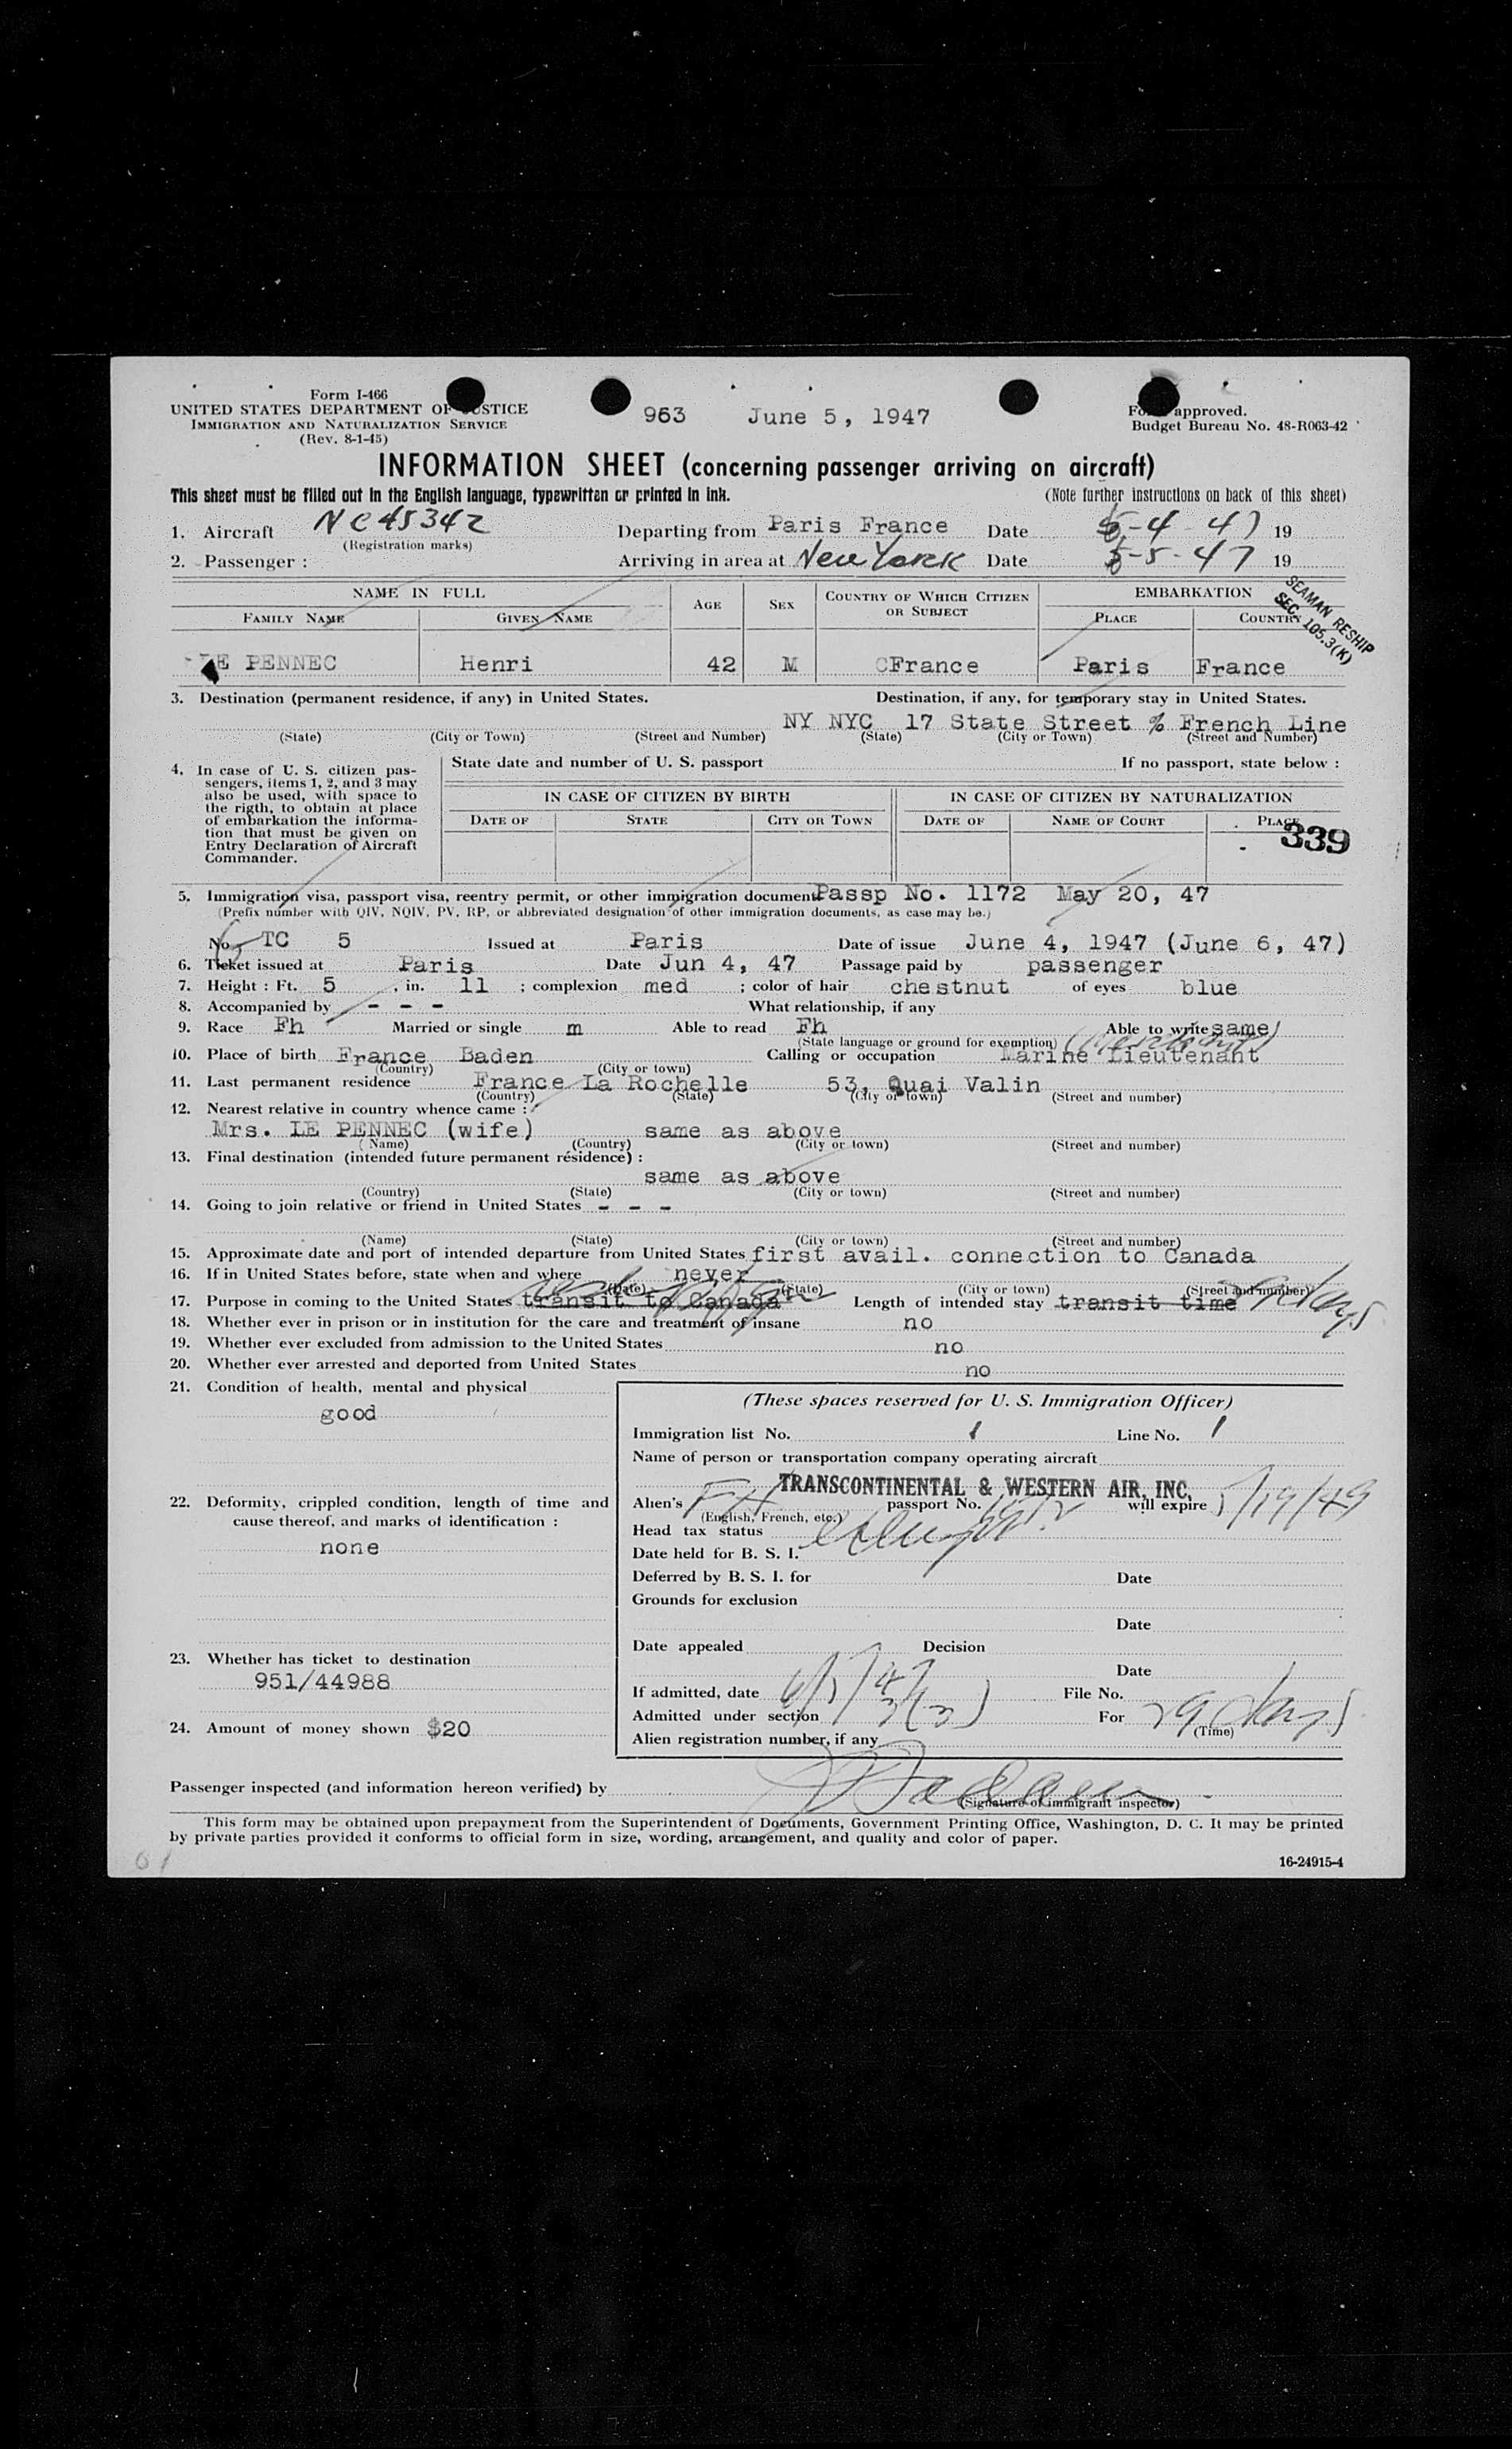 Form I-466
UNITED STATES DEPARTMENT OF JUSTICE
IMMIGRATION AND NATURALIZATION SERVICE
(Rev. 8-1-45)
963 June 5, 1947
Form approved.
Budget Bureau No. 48-R063-42
INFORMATION SHEET (concerning passenger arriving on aircraft)
This sheet must be filled out in the English language, typewritten or printed in ink. (Note further instructions on back of this sheet)
1. Aircraft NC45342 Departing from Paris France Date 6-4-47 19
(Registration marks)
2. Passenger : Arriving in area at New York Date 6-5-47 19
NAME IN FULL AGE SEX COUNTRY OF WHICH CITIZEN OR SUBJECT EMBARKATION
FAMILY NAME GIVEN NAME PLACE COUNTRY
SEAMAN RESHIP
SEC. 105.3(K)
LE PENNEC Henri 42 M France Paris France
3. Destination (permanent residence, if any) in United States. Destination, if any, for temporary stay in United States.
NY NYC 17 State Street % French Line
(State) (City or Town) (Street and Number) (State) (City or Town) (Street and Number)
4. In case of U. S. citizen pas-
sengers, items 1, 2, and 3 may
also be used, with space to
the rigth, to obtain at place
of embarkation the informa-
tion that must be given on
Entry Declaration of Aircraft
Commander.
State date and number of U. S. passport If no passport, state below :
IN CASE OF CITIZEN BY BIRTH IN CASE OF CITIZEN BY NATURALIZATION
DATE OF STATE CITY OR TOWN DATE OF NAME OF COURT PLACE
339
5. Immigration visa, passport visa, reentry permit, or other immigration document Passp No. 1172 May 20, 47
(Prefix number with QIV, NQIV, PV, RP, or abbreviated designation of other immigration documents, as case may be.)
No. TC 5 Issued at Paris Date of issue June 4, 1947 (June 6, 47)
6. Ticket issued at Paris Date Jun 4, 47 Passage paid by passenger
7. Height : Ft. 5 , in. 11 ; complexion med ; color of hair chestnut of eyes blue
8. Accompanied by - - - What relationship, if any
9. Race Fh Married or single m Able to read Fh Able to write same
(State language or ground for exemption)
10. Place of birth France Baden Calling or occupation Marine Lieutenant
(Country) (City or town)
11. Last permanent residence France La Rochelle 53, Quai Valin
(Country) (State) (City or town) (Street and number)
12. Nearest relative in country whence came :
Mrs. LE PENNEC (wife) same as above
(Name) (Country) (City or town) (Street and number)
13. Final destination (intended future permanent résidence) :
same as above
(Country) (State) (City or town) (Street and number)
14. Going to join relative or friend in United States - - -
(Name) (State) (City or town) (Street and number)
15. Approximate date and port of intended departure from United States first avail. connection to Canada
16. If in United States before, state when and where never
(Date) (State) (City or town) (Street and number)
17. Purpose in coming to the United States transit to Canada Length of intended stay transit time 29 days
18. Whether ever in prison or in institution for the care and treatment of insane no
19. Whether ever excluded from admission to the United States no
20. Whether ever arrested and deported from United States no
21. Condition of health, mental and physical
good
22. Deformity, crippled condition, length of time and
cause thereof, and marks of identification :
none
23. Whether has ticket to destination
951/44988
24. Amount of money shown $20
(These spaces reserved for U. S. Immigration Officer)
Immigration list No. 1 Line No. 1
Name of person or transportation company operating aircraft
TRANSCONTINENTAL & WESTERN AIR, INC.
Alien's FH passport No. 1172 will expire 5/19/49
(English, French, etc.)
Head tax status exempt
Date held for B. S. I.
Deferred by B. S. I. for Date
Grounds for exclusion
Date
Date appealed Decision
Date
If admitted, date 6/5/47 File No.
Admitted under section 3(3) For 29 days
(Time)
Alien registration number, if any
Passenger inspected (and information hereon verified) by
(Signature of immigrant inspector)
This form may be obtained upon prepayment from the Superintendent of Documents, Government Printing Office, Washington, D. C. It may be printed
by private parties provided it conforms to official form in size, wording, arrangement, and quality and color of paper.
16-24915-4